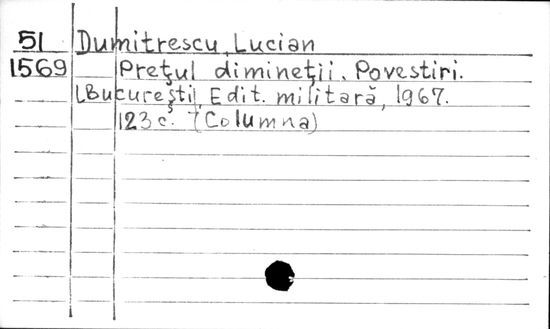 51 Dumitrescu, Lucian
1569 Prețul dimineții. Povestiri.
[București], Edit. militară, 1967.
123 c. (Columna)